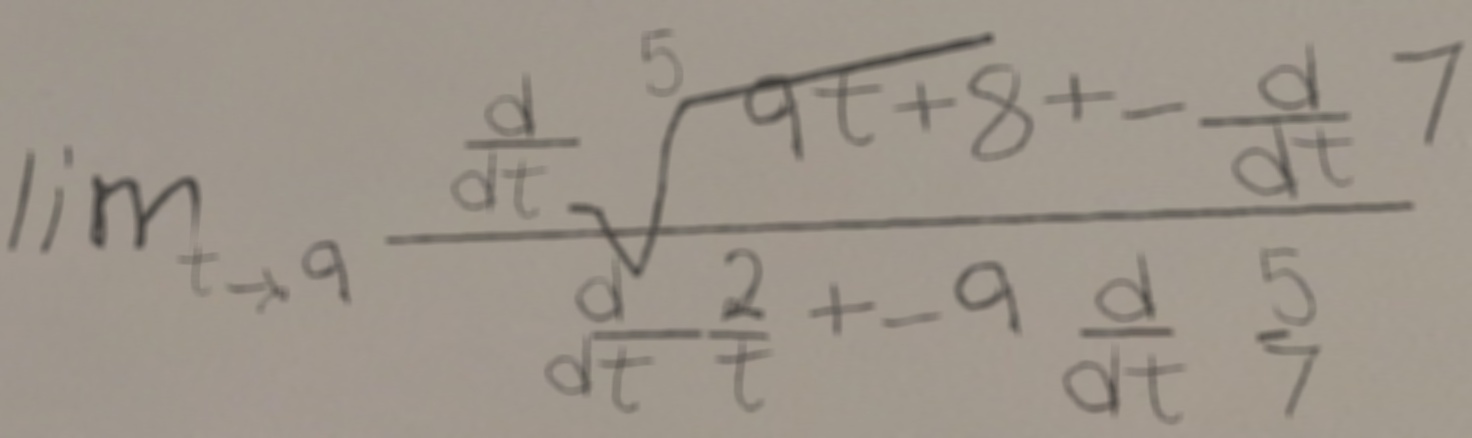 \lim_{t \to 9} \frac{\frac{d}{dt} \sqrt[5]{9t+8} + - \frac{d}{dt} 7}{\frac{d}{dt} \frac{2}{t} + - 9 \frac{d}{dt} \frac{5}{7}}